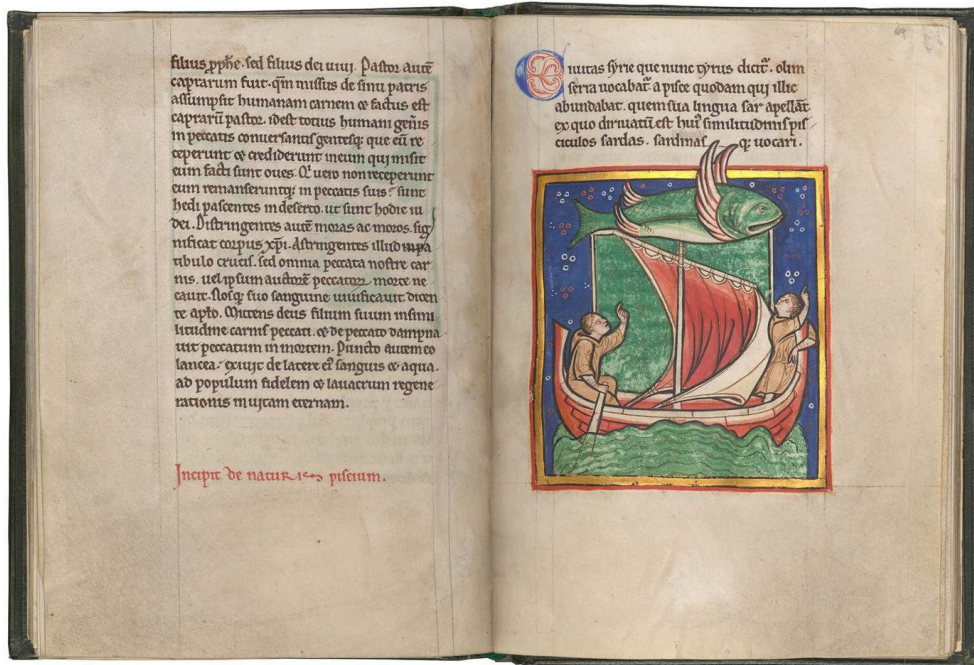 filius pphe. sed filius dei uiui. Pastor aute
caprarum fuit. qm missus de sinu patris
assumpsit humanam carnem & factus est
capraru pastor. idest totius humani genis
in peccatis conuersantis gentesq; que eu re
ceperunt & crediderunt in eum qui misit
eum facti sunt oues. Qi uero non receperunt
eum remanseruntq; in peccatis suis: sunt
hedi pascentes in deserto. ut sunt hodie iu
dei. Distringentes aute moras ac moros. sig
nificat corpus xpi. Astringentes illud in pa
tibulo crucis. sed omnia peccata nostre car
nis. uel ipsum auctore peccator morte ne
cauit. Nosq; suo sanguine uiuificauit. dicen
te aplo. Mittens deus filium suum in simi
litudine carnis peccati. & de peccato dampna
uit peccatum in mortem. Puncto autem eo
lancea: exiuit de latere ei sanguis & aqua.
ad populum fidelem & lauacrum regene
rationis in uitam eternam.
Incipit de naturis piscium.
Ciuitas syrie que nunc tyrus dicit. olim
seria uocabat a pisce quodam qui illic
abundabat. quem sua lingua sar apellat
ex quo diriuatu est hui similitudinis pis
ciculos sardas. sardinas q; uocari.